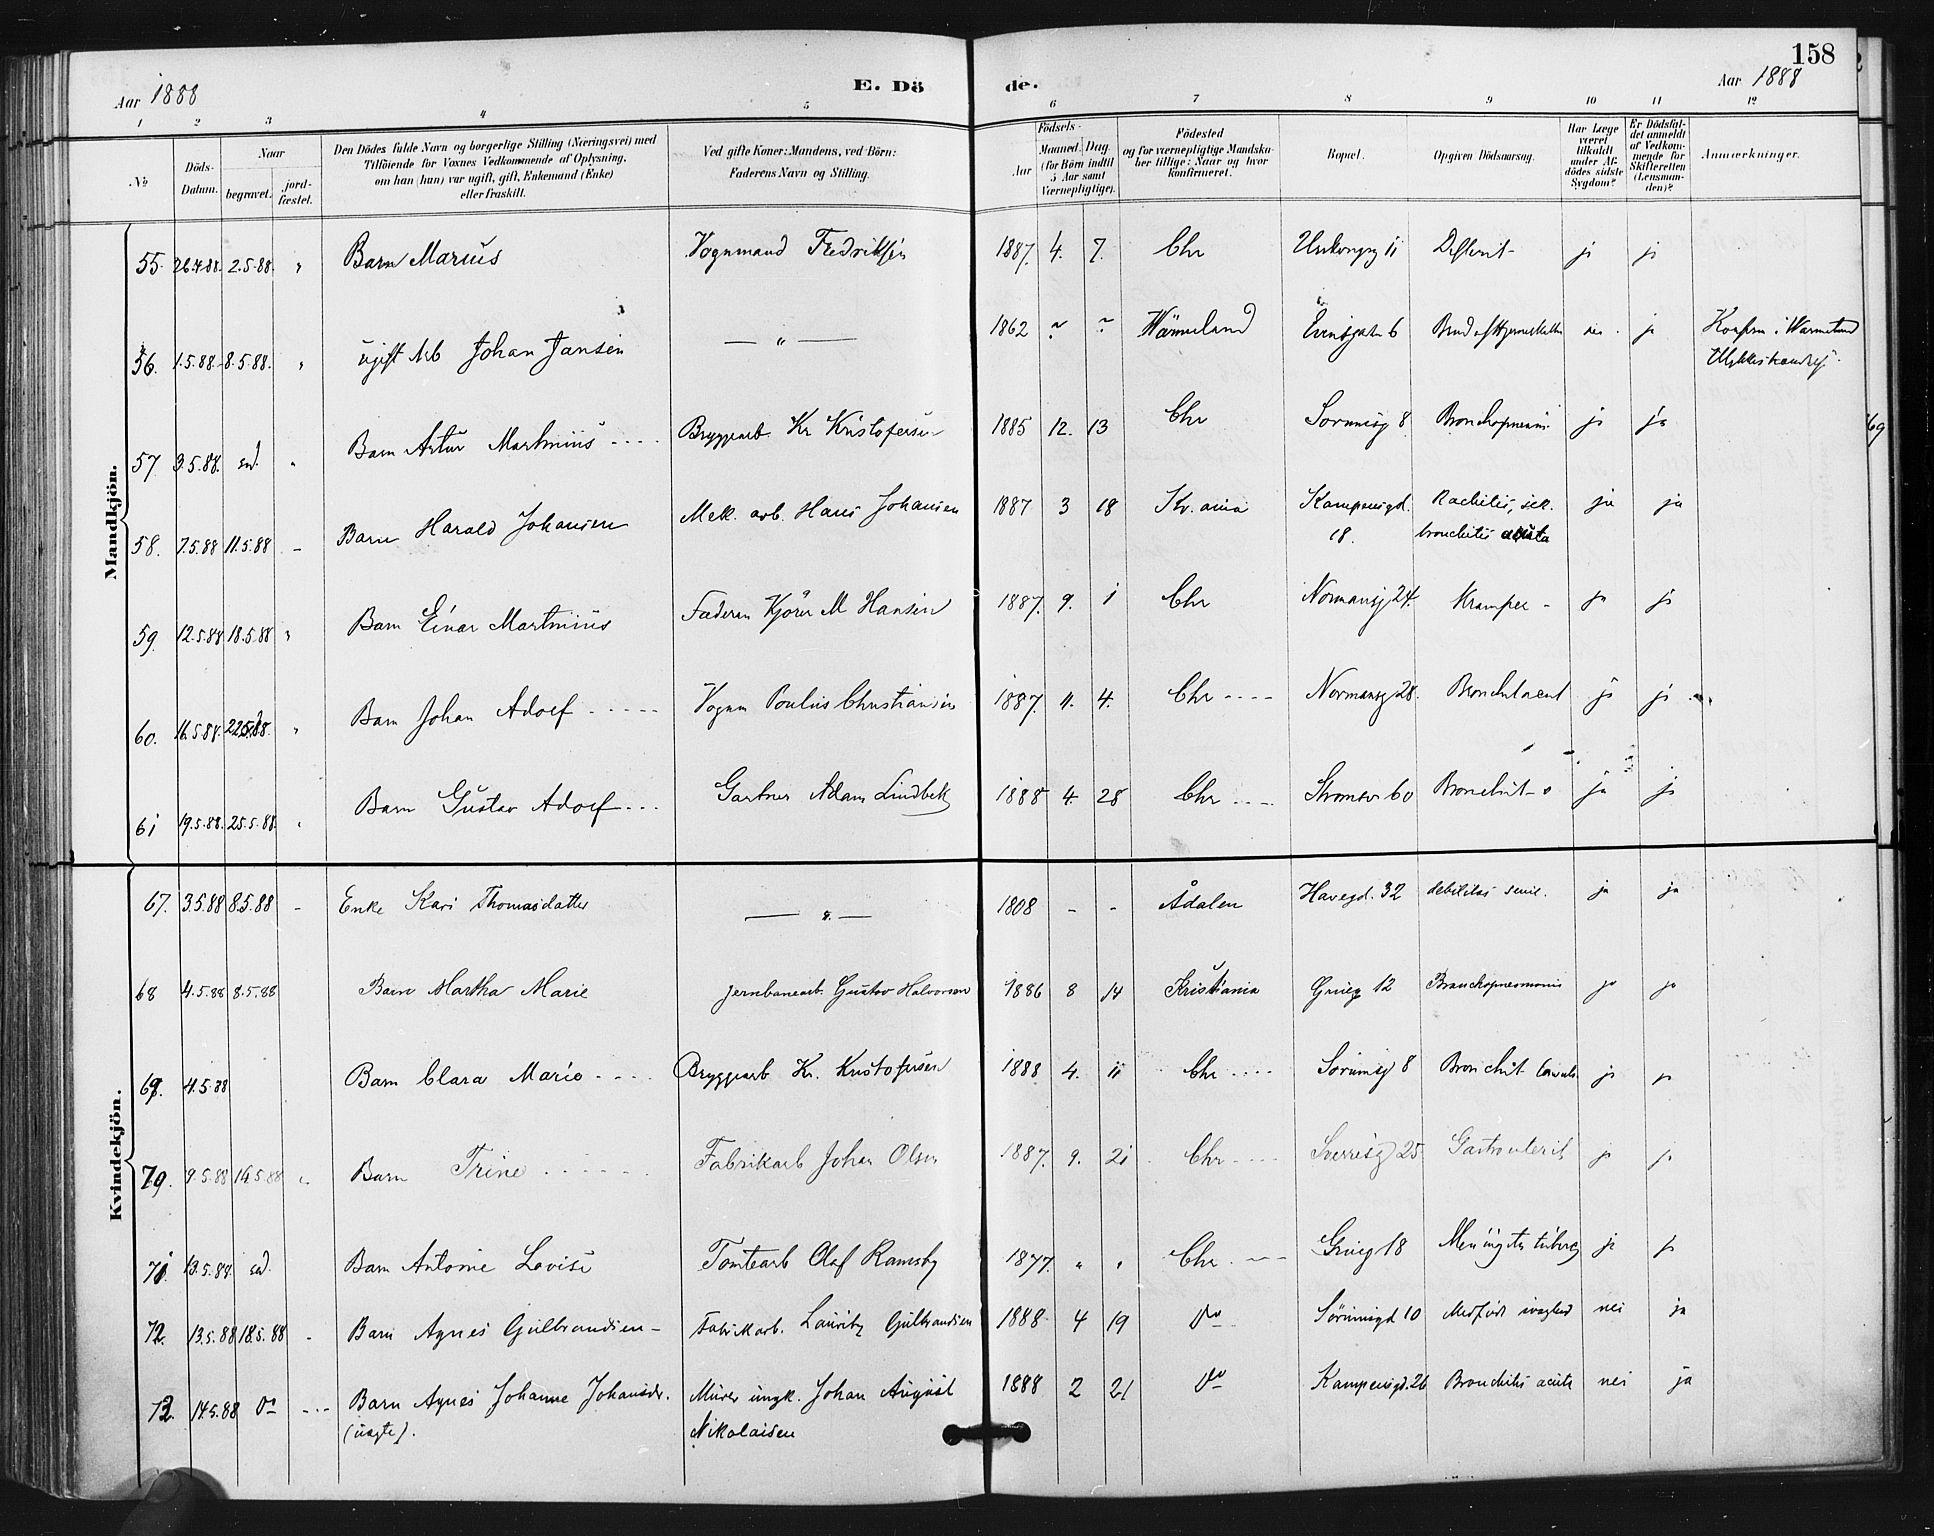 158
Aar 1888
E. Dö
de.
Aar 1888
1 2 3 4 5 6 7 8 9 10 11 12
No
Döds-
Datum.
Naar
begravet.
jord-
fæstet.
Den Dödes fulde Navn og borgerlige Stilling (Næringsvei) med
Tilföiende for Voxnes Vedkommende af Oplysning,
om han (hun) var ugift, gift, Enkemand (Enke)
eller fraskilt.
Ved gifte Koner: Mandens, ved Börn:
Faderens Navn og Stilling.
Födsels-
Aar
Maaned. Dag
(for Börn indtil
5 Aar samt
Værnepligtige).
Födested
og for værnepligtige Mandska-
ber tillige: Naar og hvor
konfirmeret.
Bopæl.
Opgiven Dödsaarsag.
Har Læge
været
tilkaldt
under Af-
dödes sidste
Sygdom?
Er Dödsfal-
det anmeldt
af Vedkom-
mende for
Skifteretten
(Lensman-
den)?
Anmærkninger.
Mandkjön.
55. 26.4.88. 2.5.88. " Barn Marius Vognmand Fredriksen 1887. 4. 7. Chr 11 Difterit ja ja
56. 1.5.88. 8.5.88. " ugift Arb Johan Jansen — " — 1862 Wärmeland 6 nei ja Konfirm i Warmeland
57. 3.5.88. sd. " Barn Artur Martinius Bryggearb. Kr Kristofersen 1885 12. 13 Chr Sorumsg 8 Bronchopneumi ja ja
58. 7.5.88 11.5.88 - Barn Harald Johansen Mek. arb. Hans Johansen 1887 3 18 Kr.ania Kampensgd. 18. Rachitis, sek. bronchitis acuta ja ja
59. 12.5.88 18.5.88 " Barn Einar Martinius Faderen Kjörer M Hansen 1887. 9. 1 Chr Normansg 24. Kramper - ja ja
60. 16.5.88. 22.5.88. " Barn Johan Adolf Vognm Paulus Christiansen 1887. 11. 4. Chr Normansg 28. Bronchit acut ja ja
61 19.5.88. 25.5.88. " Barn Gustav Adolf Gartner Adam Lindbek 1888 4. 28 Chr Stromsv 60 Bronchit ja ja
Kvindekjön.
67. 3.5.88 8.5.88 - Enke Kari Thomasdatter — " — 1808 - - Ådalen Havegd. 32 debilitas senil. ja ja
68 4.5.88 8.5.88 Barn Martha Marie Jernbanearb. Gustav Halvorsen 1886 8 14 Kristiania Grueg 12 Bronchopneomonie ja ja
69. 4.5.88 Barn Clara Marie Bryggearb Kr. Kristofersen 1888 4. 11 Chr Sorumsg 8 Bronchit ja ja
70. 9.5.88 14.5.88 " Barn Trine Fabrikarb Johan Olsen 1887. 9. 21 Chr Sverresg 25 Gastroenterit ja ja
71. 13.5.88. sd. Barn Antonie Lovise Tomtearb Olaf Ramsby 1877. " " Chr Grueg 18 Meningitis tuberc ja ja
72. 13.5.88 18.5.88 - Barn Agnes Gulbrandsen - Fabrikarb. Lauritz Gulbrandsen 1888 4 19 Do Sörumsgd 10 Medfödt svaghed nei ja
72. 14.5.88 Do Barn Agnes Johanne Johansdr. (uægte). Murer ungk. Johan August Nikolaisen 1888 2 21 Do Kampensgd. 26 Bronchitis acuta nei ja